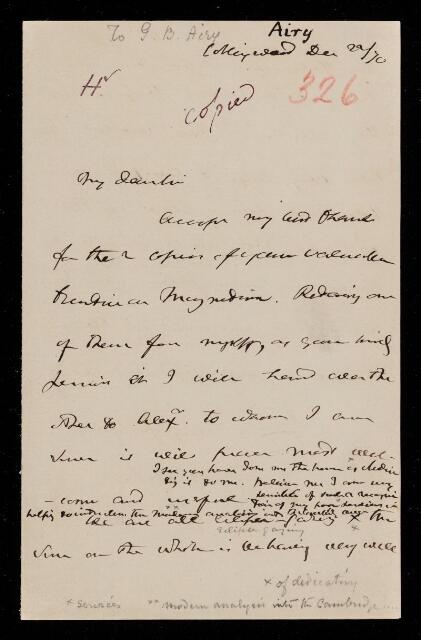 To G. B. Airy
Airy
Collingwood Dec 22/70
Hl
copied
326
My dear Sir
Accept my best thanks
for the 2 copies of your valuable
treatise on Magnetism. Retaining one
of them for myself, as you kindly
permit it I will hand over the
other to Alexr. to whom I am
sure it will prove most wel-
I see you have done me the honor of dedica
ting it to me. Believe me I am very
- come and useful sensible of such a recognition
of my poor services in
helping to introduce the modern analysis into the Cambridge
We are all eclipse-gazing & the
eclipse gazing
sun on the whole is behaving very well
x of dedicating
* services ** modern analysis into the Cambridge....